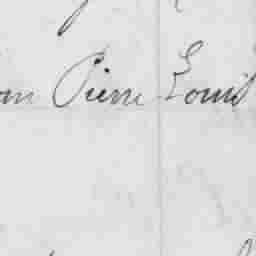 Pierre Louis